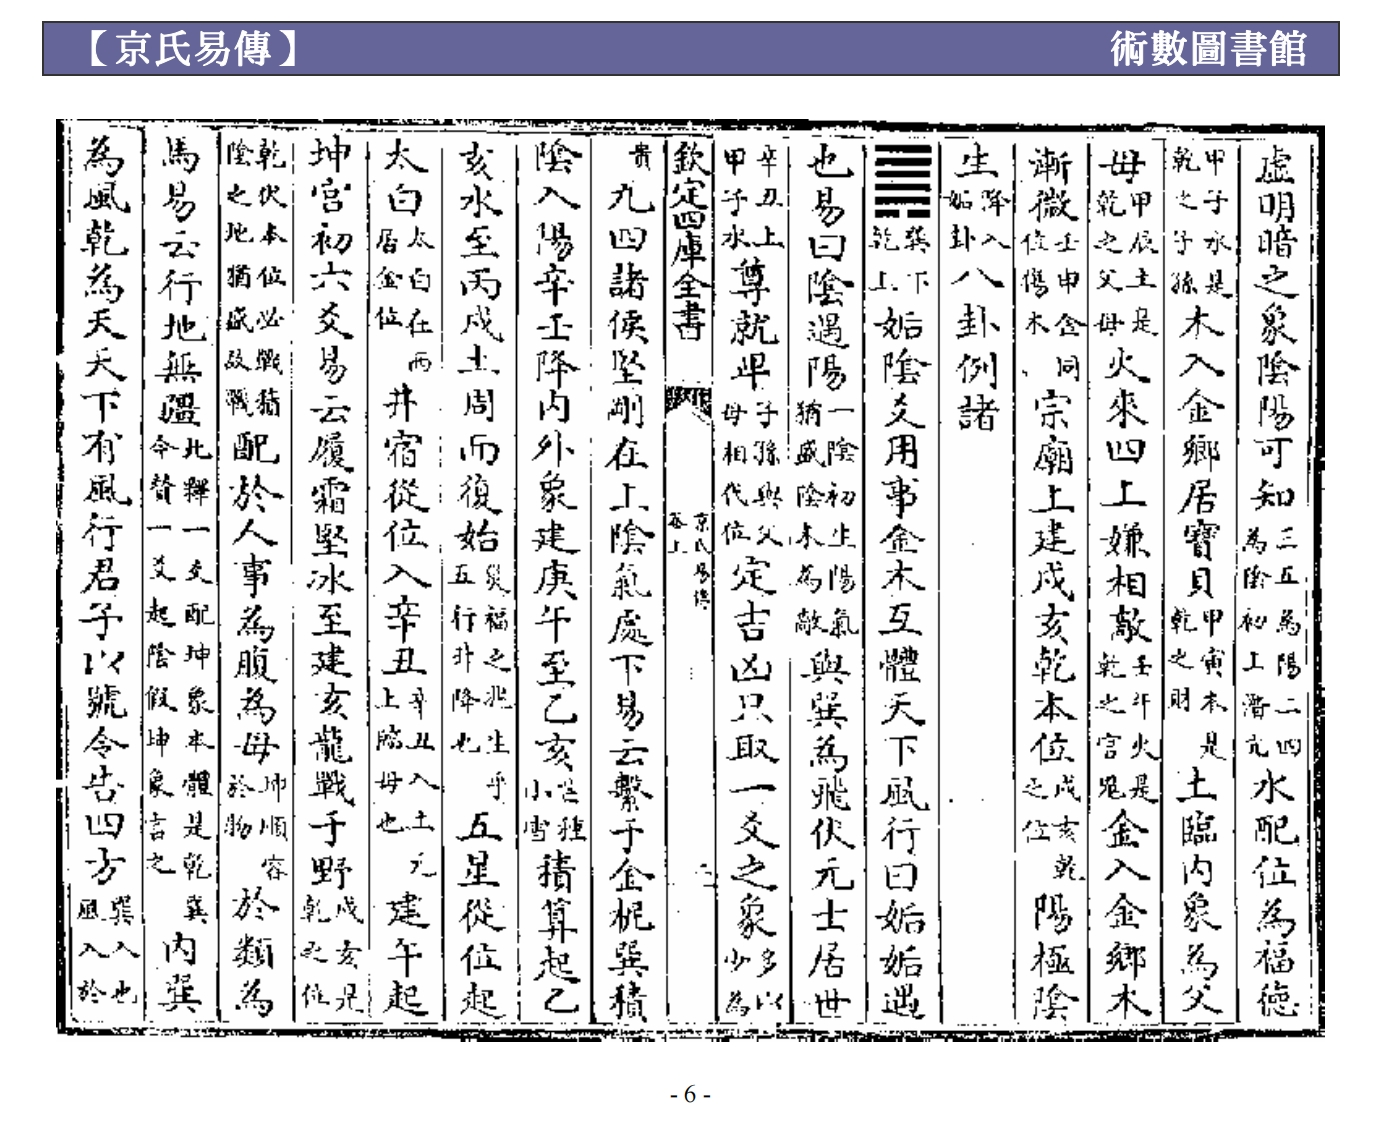 【京氏易傳】 術數圖書館
虛明暗之象陰陽可知三五為陽二四為陰初上潛亢水配位為福德
甲子水是乾之子孫木入金鄉居寶貝甲寅本是乾之財土臨內象為父
母甲辰土是乾之父母火來四上嫌相敵壬午火是乾之官鬼金入金鄉木
漸微壬申金同位傷木宗廟上建戌亥乾本位戌亥乾之位陽極陰
生降入姤卦八卦例諸
䷫巽下乾上姤陰爻用事金木互體天下風行曰姤姤遇
也易曰陰遇陽一陰初生陽氣猶盛陰未為敵與巽為飛伏元士居世
辛丑土甲子水尊就卑子孫與父母相代位定吉凶只取一爻之象多以少為
欽定四庫全書 京氏易傳卷上
貴九四諸侯堅剛在上陰氣處下易云繫于金柅巽積
陰入陽辛壬降內外象建庚午至乙亥芒種小雪積算起乙
亥水至丙戌土周而復始災福之兆生乎五行升降也五星從位起
太白太白在西居金位井宿從位入辛丑辛丑入土元上臨母也建午起
坤宮初六爻易云履霜堅冰至建亥龍戰于野戌亥是乾之位
乾伏本位必戰猶陰之地猶盛故戰配於人事為腹為母坤順容於物於類為
馬易云行地無疆此釋一爻配坤象本體是乾巽今贊一爻起陰假坤象言之內巽
為風乾為天天下有風行君子以號令告四方巽入也風入於
- 6 -